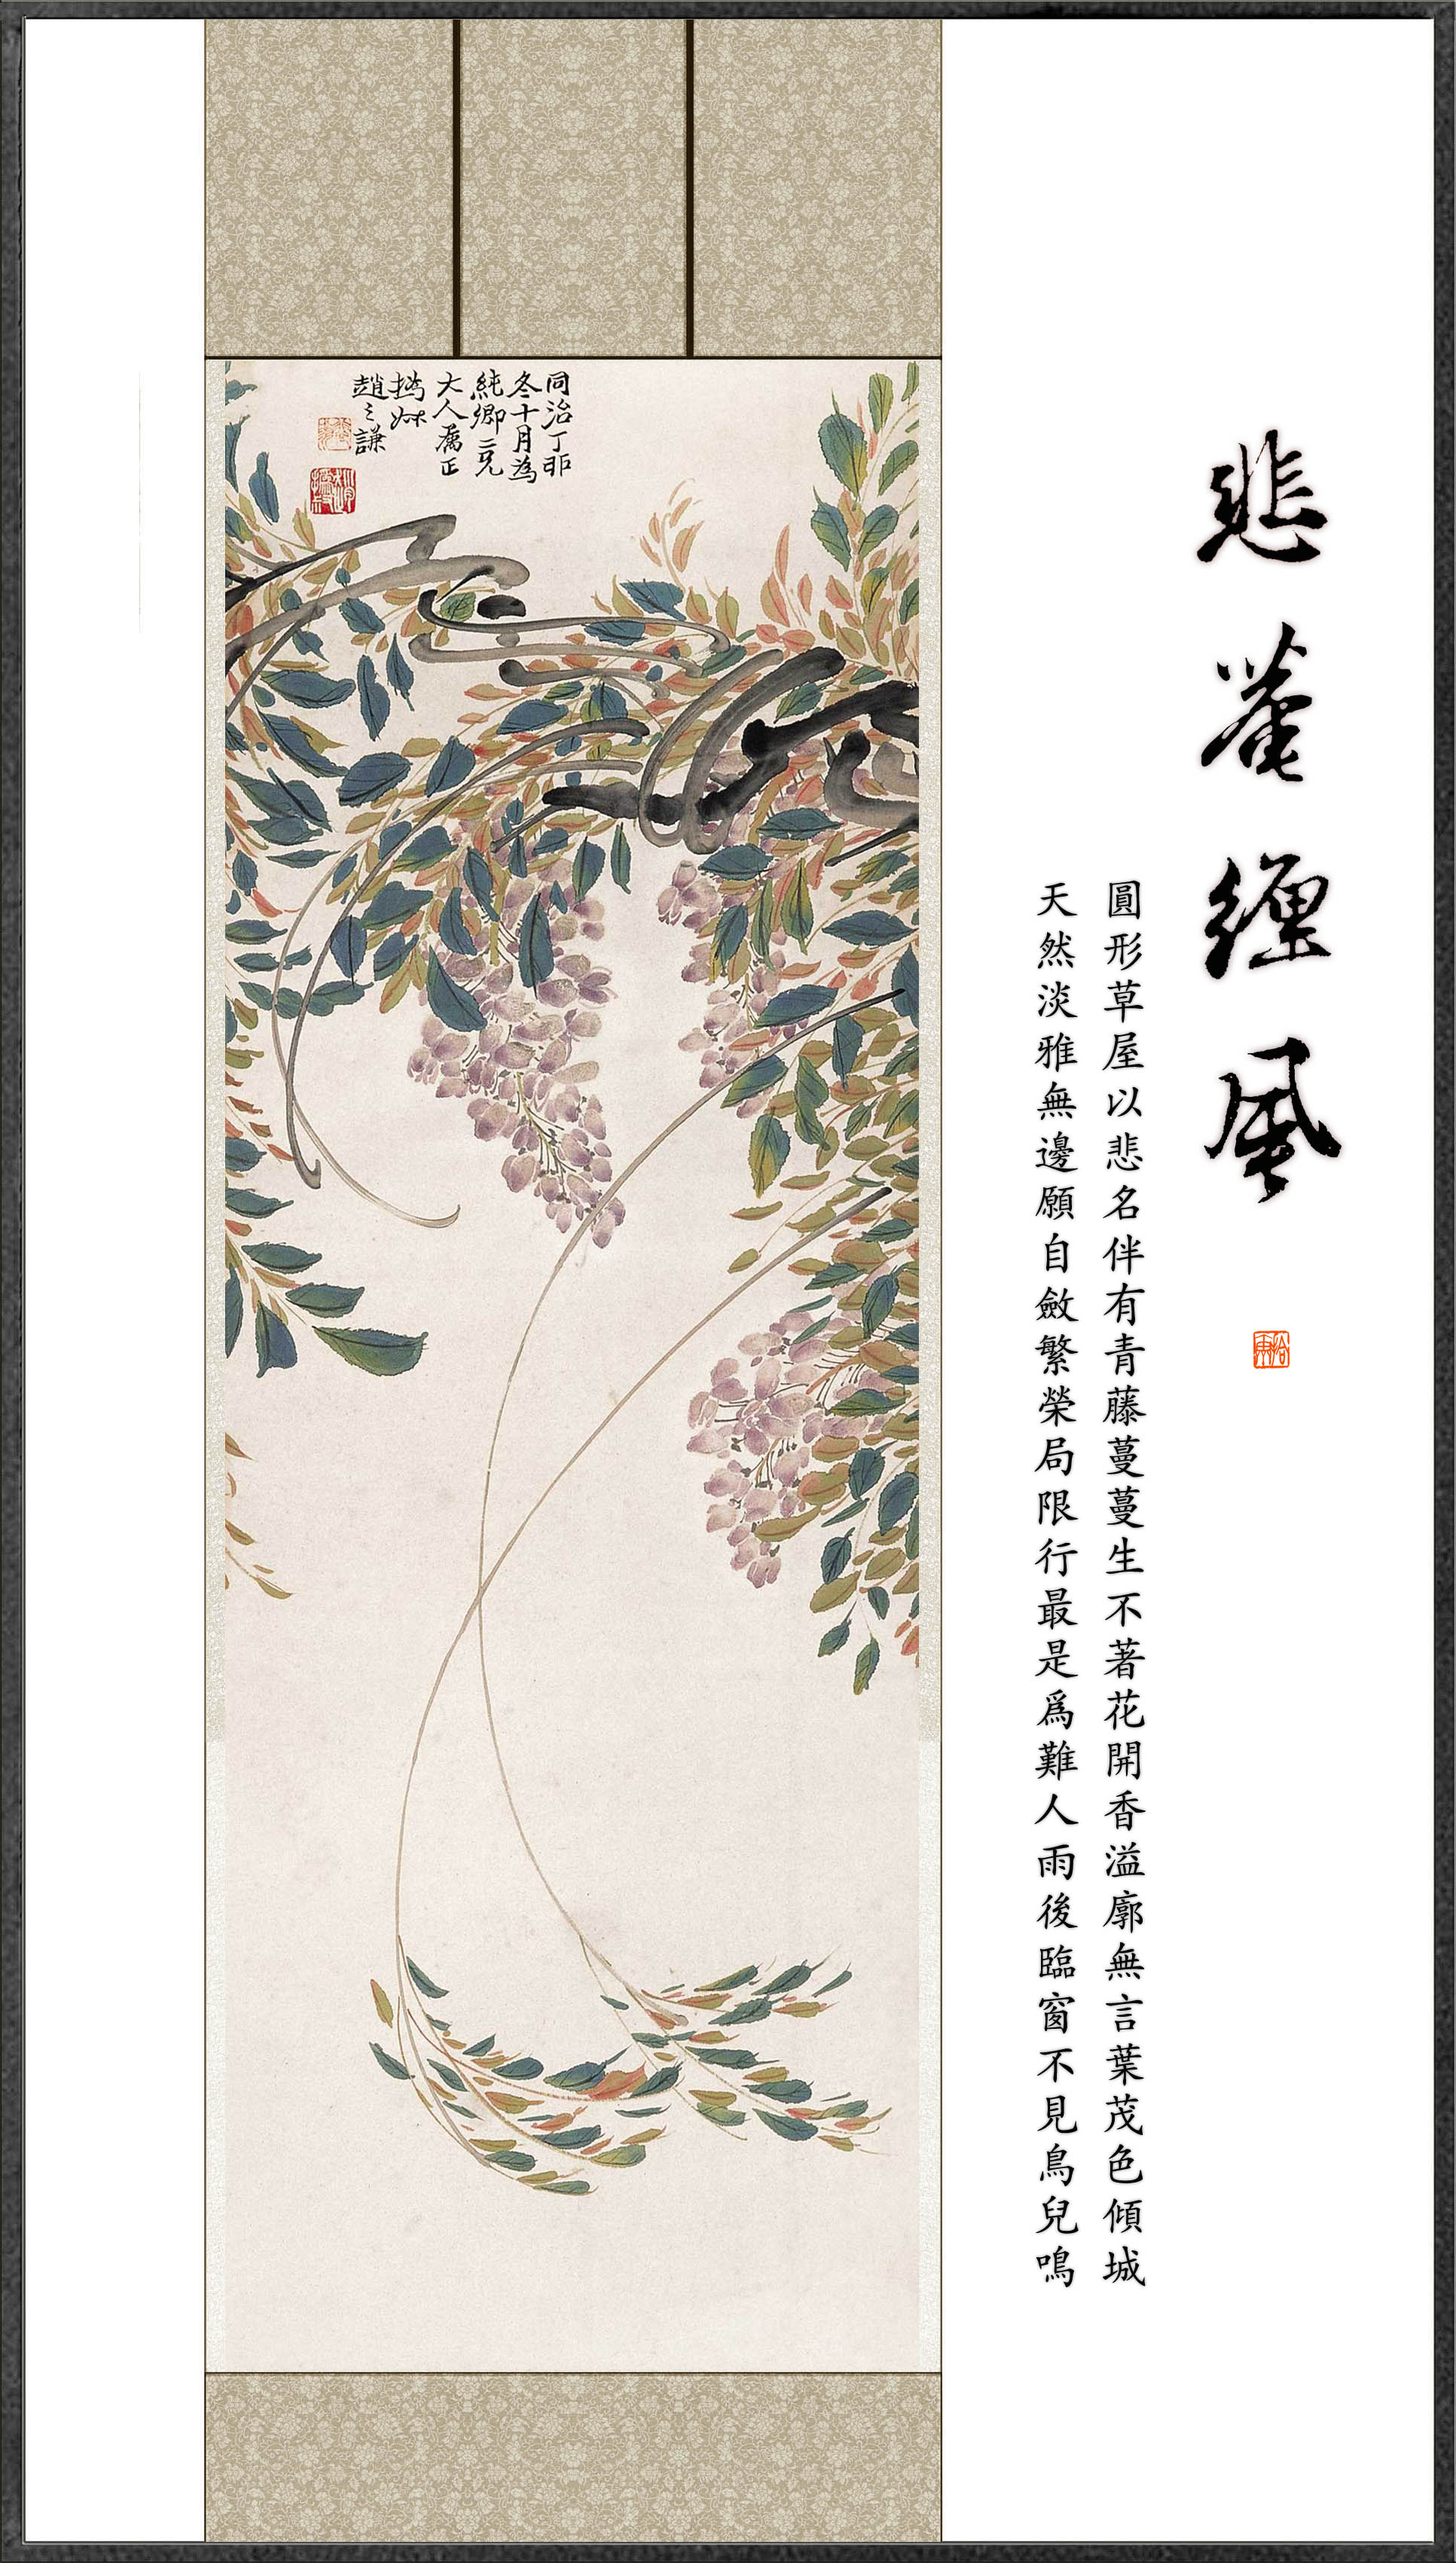 悲菴纏風
圓形草屋以悲名伴有青藤蔓蔓生不著花開香溢廓無言葉茂色傾城
天然淡雅無邊願自斂繁榮局限行最是爲難人雨後臨窗不見鳥兒鳴
同治丁卯
冬十月為
純卿二兄
大人屬正
撝叔
趙之謙